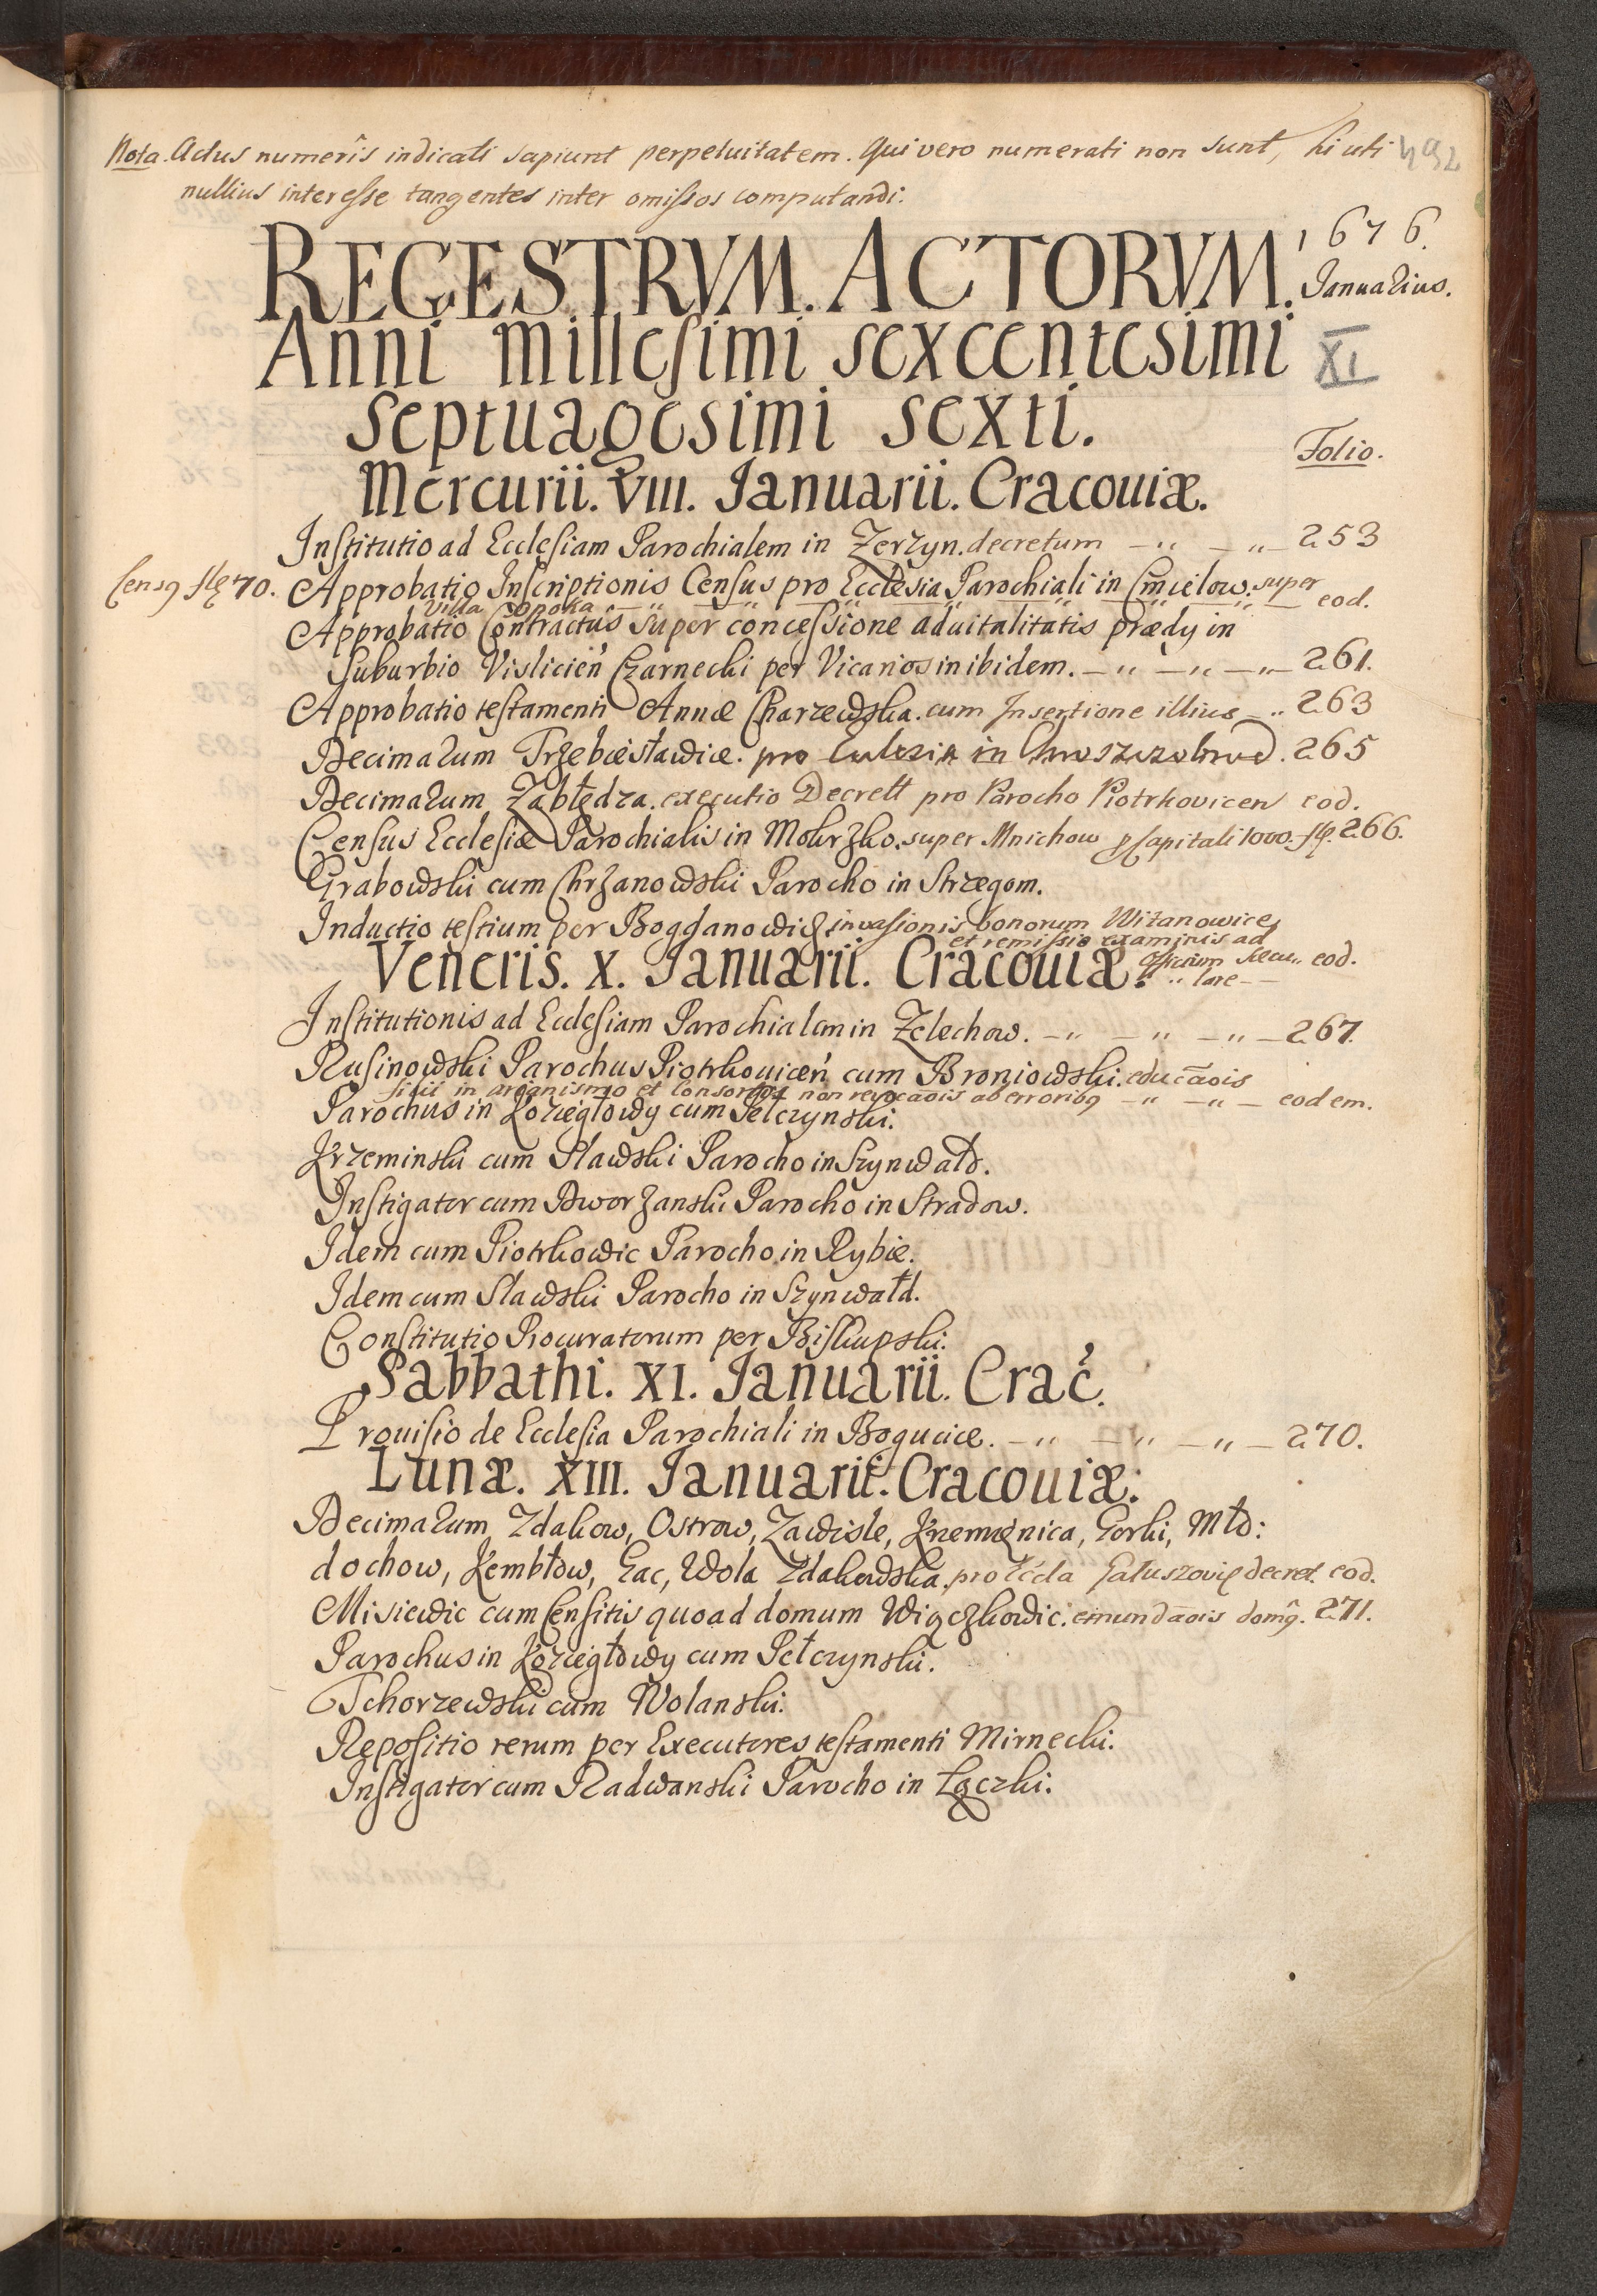 Nota. Actus numeris indicati sapiunt perpetuitatem. Qui vero numerati non sunt, hi uti
492
nullius interesse tangentes inter omissos computandi.
1676.
REGESTRVM. ACTORVM.
Januarius.
Anni millesimi sexcentesimi
XI
septuagesimi sexti.
Folio.
Mercurii. VIII. Januarii. Cracouiæ.
Institutio ad Ecclesiam Parochialem in Zerzyn. decretum 253
Census flp 70. Approbatio Inscriptionis Census pro Ecclesia Parochiali in Cmielow. super eod.
villa
Approbatio Contractus super concessione aduitalitatis prædy in
suburbio Vislicień Czarnecki per Vicarios in ibidem. 261.
Approbatio testamenti Annæ Charzewska. cum Insertione illius 263
Decimarum Trzebiesławice. pro Ecclesia in Chroszczobrod. 265
Decimarum Zabłędza. executio Decreti pro Parocho Piotrkovicen eod.
Census Ecclesiæ Parochialis in Mokrzko. super Mnichow p Capitali 1000. flp. 266.
Grabowski cum Chrzanowski Parocho in Strzegom.
Inductio testium per Bogdanowicz invasionis bonorum Witanowice
et remissio examinis ad
officium secu..
lare eod.
Veneris. X. Januarii. Cracouiæ.
Institutionis ad Ecclesiam Parochialem in Zelechow. 267.
Rusinowski Parochus Piotrkouiceń cum Broniowski. educãois
non revocaois ab erroribg eodem.
Parochus in Koziegłowy cum Pełczynski.
Krzeminski cum Slawski Parocho in Szynwałd.
Instigator cum Dworzanski Parocho in Stradow.
Idem cum Piotrkowic Parocho in Rybie.
Idem cum Slawski Parocho in Szynwałd.
Constitutio Procuratorum per Biskupski.
Sabbathi. XI. Januarii. Crac.
Prouisio de Ecclesia Parochiali in Bogucice. 270.
Lunæ. XIII. Januarii. Cracouiæ.
Decimarum Zdakow, Ostrow, Zawisle, Krzemienica, Gorki, Mło:
dochow, Kembłow, Gac, Wola Zdakowska. pro Eccla Gatuszovię decret. eod.
Misiewic cum Censitis quoad domum Więczkowic. emundãois domg. 271.
Parochus in Koziegłowy cum Pełczynski.
Tchorzewski cum Wolanski.
Repositio rerum per Executores testamenti Mirnecki.
Instigator cum Radwanski Parocho in Łączki.